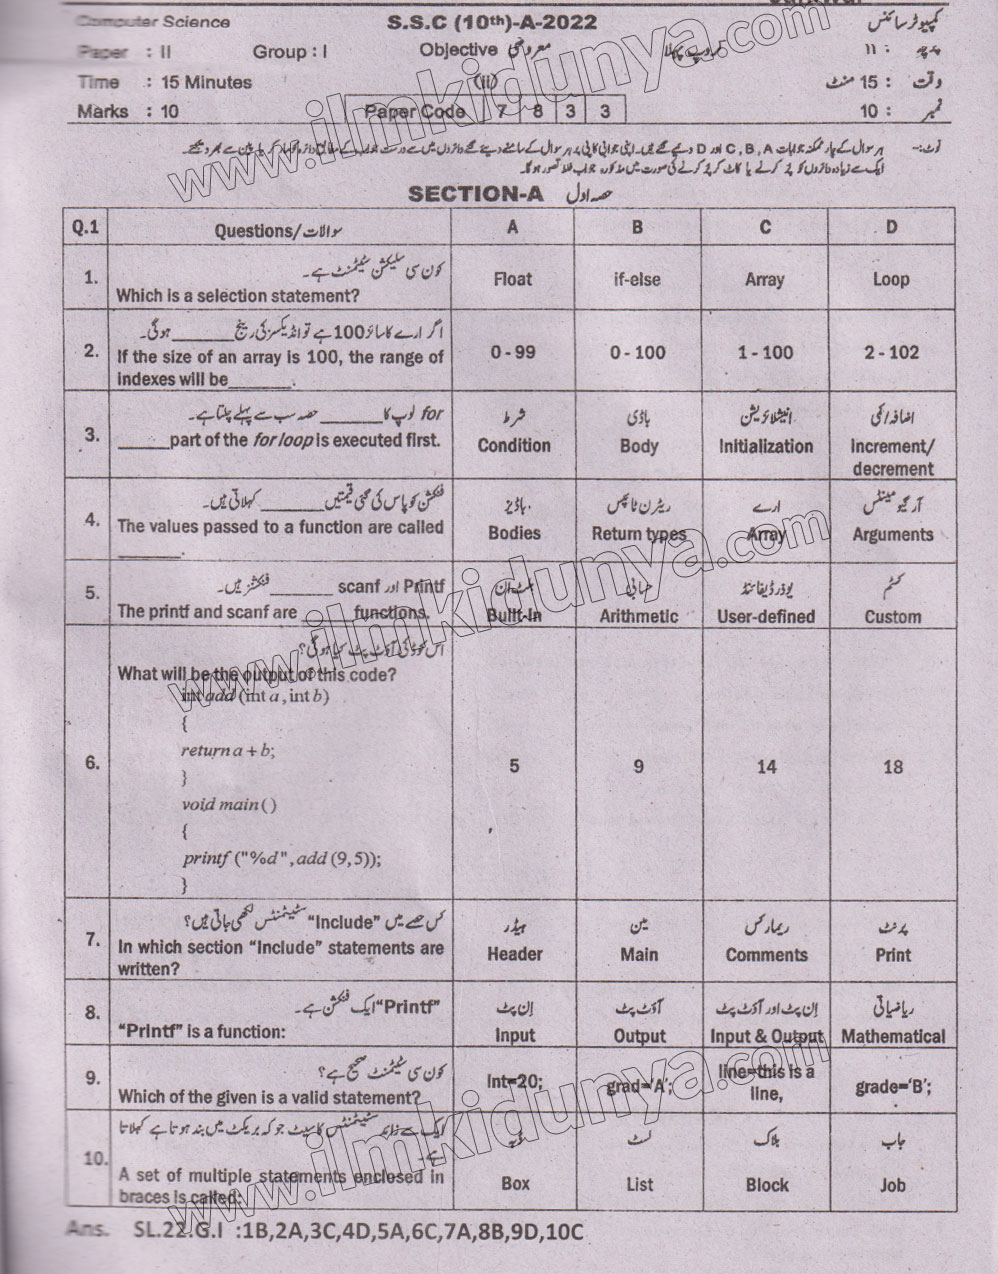 Computer Science S.S.C (10th)-A-2022 کمپیوٹر سائنس
Paper : II Group : I Objective معروضی گروپ پہلا II : پرچہ
Time : 15 Minutes (ii) وقت : 15 منٹ
Marks : 10 Paper Code 7 8 3 3 10 : نمبر
نوٹ:- ہر سوال کے چار ممکنہ جوابات C, B, A اور D دیے گئے ہیں۔ اپنی جوابی کاپی پر ہر سوال کے سامنے دیے گئے دائروں میں سے درست جواب کے مطابق دائرہ کو مارکر یا پین سے بھر دیجئے۔
ایک سے زیادہ دائروں کو پُر کرنے یا کاٹ کر پُر کرنے کی صورت میں مذکورہ جواب غلط تصور ہو گا۔
SECTION-A حصہ اول
Q.1 Questions/سوالات A B C D
1. کون سی سلیکشن سٹیٹمنٹ ہے۔
Which is a selection statement? Float if-else Array Loop
2. اگر ارے کا سائز 100 ہے تو انڈیکسز کی رینج ______ ہوگی۔
If the size of an array is 100, the range of
indexes will be______. 0 - 99 0 - 100 1 - 100 2 - 102
3. for لوپ کا ______ حصہ سب سے پہلے چلتا ہے۔ شرط باڈی انیشلائزیشن اضافہ/کمی
_____part of the for loop is executed first. Condition Body Initialization Increment/
decrement
4. فنکشن کو پاس کی گئی قیمتیں ______ کہلاتی ہیں۔ باڈیز ریٹرن ٹائپس ارے آرگیومینٹس
The values passed to a function are called Bodies Return types Array Arguments
______.
5. Printf اور scanf ______ فنکشنز ہیں۔ بلٹ-ان حسابی یوزر ڈیفائنڈ کسٹم
The printf and scanf are _____ functions. Built-In Arithmetic User-defined Custom
6. اس کوڈ کی آؤٹ پٹ کیا ہوگی؟
What will be the output of this code?
int add (int a , int b)
{
return a + b;
}
void main ()
{
printf ("%d" , add (9,5));
}
5 9 14 18
7. کس حصے میں "Include" سٹیٹمنٹس لکھی جاتی ہیں؟ ہیڈر مین ریمارکس پرنٹ
In which section "Include" statements are
written? Header Main Comments Print
8. "Printf" ایک فنکشن ہے۔ اِن پٹ آؤٹ پٹ اِن پٹ اور آؤٹ پٹ ریاضیاتی
"Printf" is a function: Input Output Input & Output Mathematical
9. کون سی سٹیٹمنٹ صحیح ہے؟
Which of the given is a valid statement? Int=20; grad='A'; line=this is a
line, grade='B';
10. ایک سے زائد سٹیٹمنٹس کا سیٹ جو کہ بریکٹ میں بند ہوتا ہے کہلاتا
ہے۔ ڈبہ لسٹ بلاک جاب
A set of multiple statements enclosed in
braces is called: Box List Block Job
Ans. SL.22.G.I :1B,2A,3C,4D,5A,6C,7A,8B,9D,10C
www.ilmkidunya.com
www.ilmkidunya.com
www.ilmkidunya.com